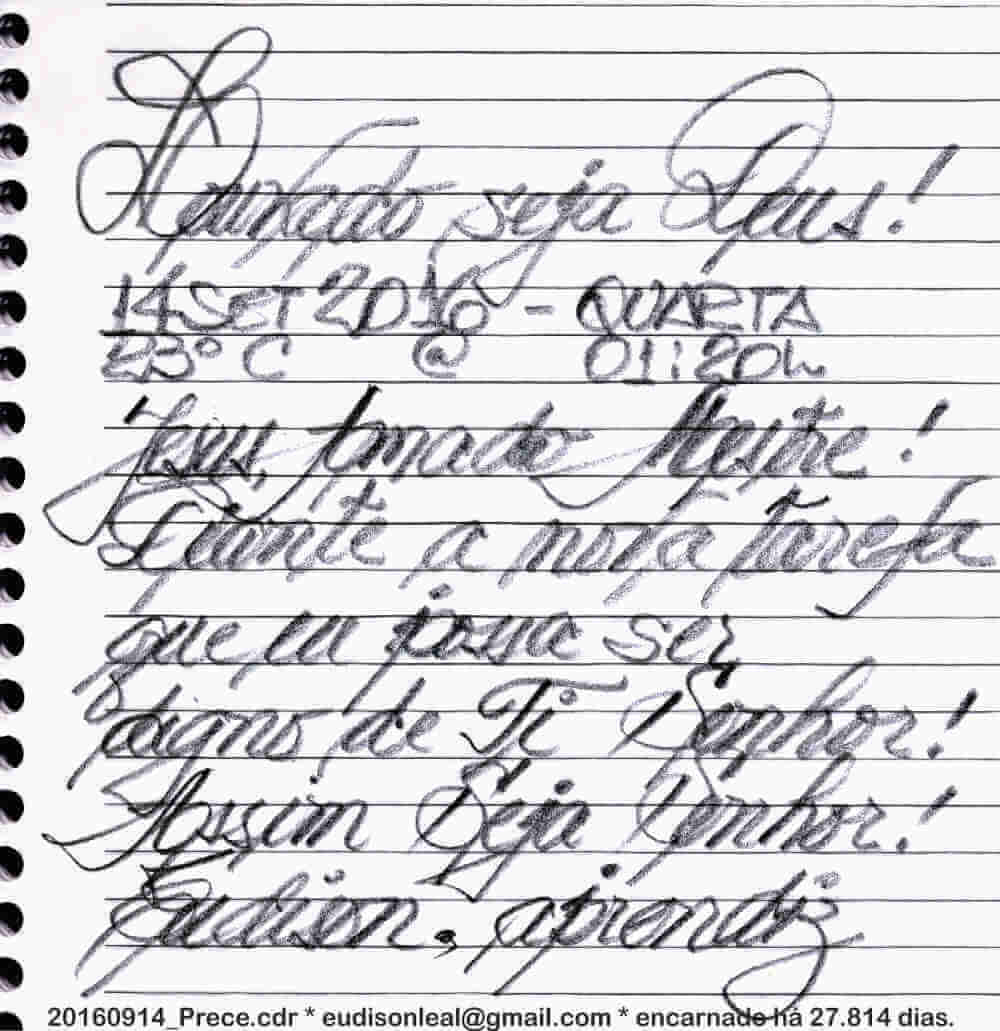 Louvado seja Deus!
14 SET 2016 - QUARTA
23° C @ 01:20h
Jesus, Amado Mestre!
Diante a nova tarefa
que eu possa ser
digno de Ti Senhor!
Assim Seja Senhor!
Eudison, aprendiz
20160914_Prece.cdr * eudisonleal@gmail.com * encarnado há 27.814 dias.